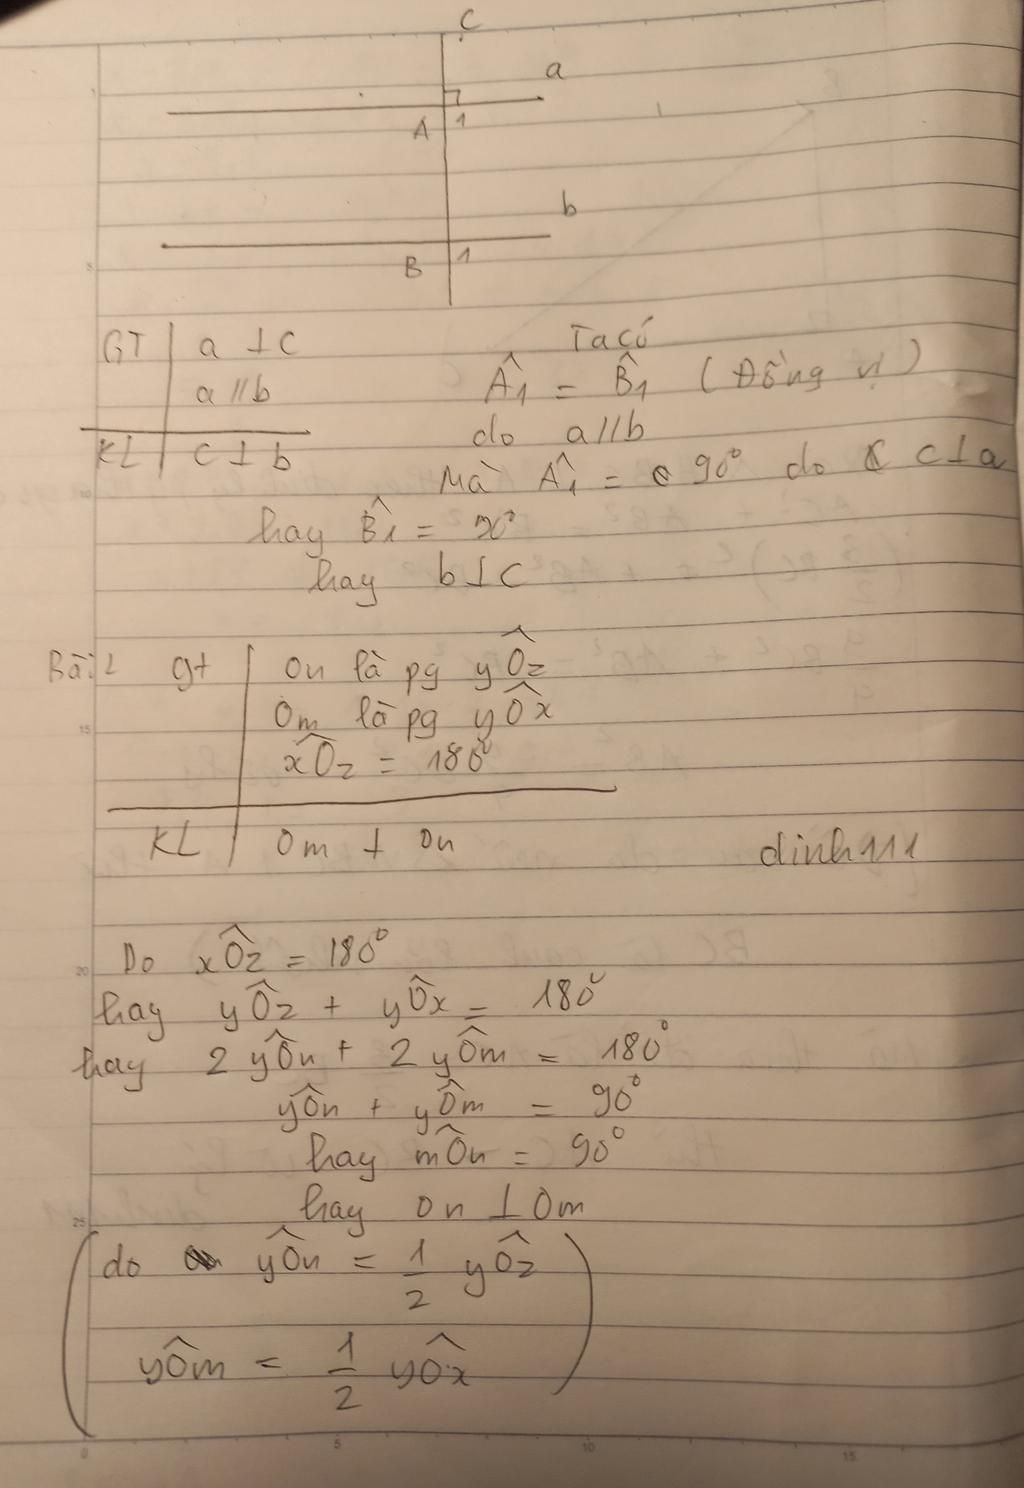 C
a
A 1
b
B 1
GT a ⊥ c
a // b
KL c ⊥ b
Ta có
Â1 = B̂1 (Đồng vị)
do a//b
Mà Â1 = 90° do c⊥a
hay B̂1 = 90°
hay b⊥c
Bài2 gt On là pg yÔz
Om là pg yÔx
xÔz = 180°
KL Om ⊥ On
dinh111
Do xÔz = 180°
hay yÔz + yÔx = 180°
hay 2 yÔn + 2 yÔm = 180°
yÔn + yÔm = 90°
hay mÔn = 90°
hay On ⊥ Om
(do yÔn = 1/2 yÔz
yÔm = 1/2 yÔx)
0 5 10 15